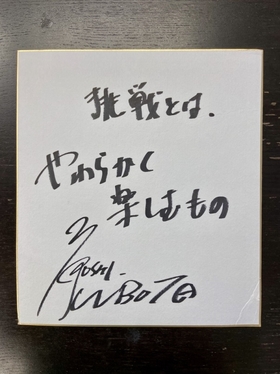 挑戦とは、
やわらかく
楽しむもの
KUBOTA